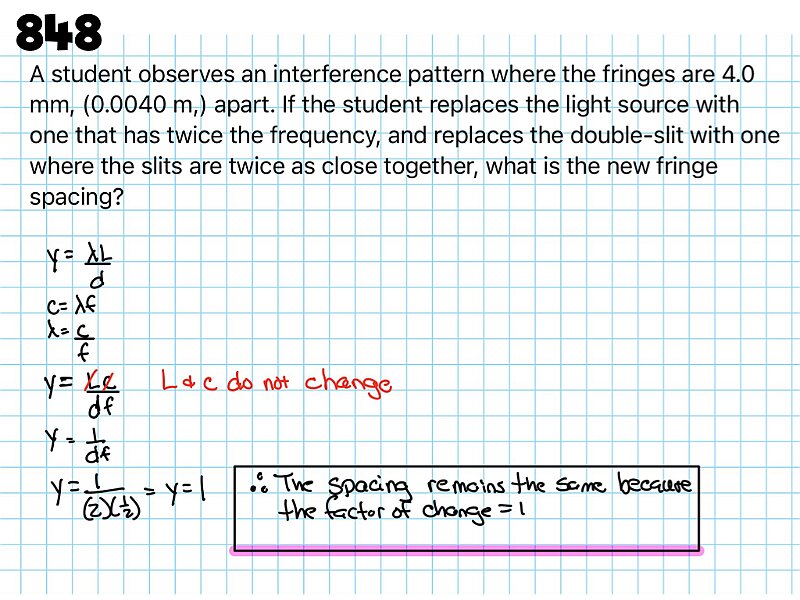 848
A student observes an interference pattern where the fringes are 4.0
mm, (0.0040 m,) apart. If the student replaces the light source with
one that has twice the frequency, and replaces the double-slit with one
where the slits are twice as close together, what is the new fringe
spacing?
y = λL/d
c = λf
λ = c/f
y = Lc/df L & c do not change
y = 1/df
y = 1/(2)(1/2) = y = 1
∴ The spacing remains the same because
the factor of change = 1